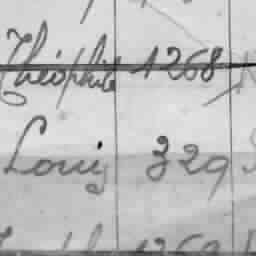 Théophile 1268
Louis 329